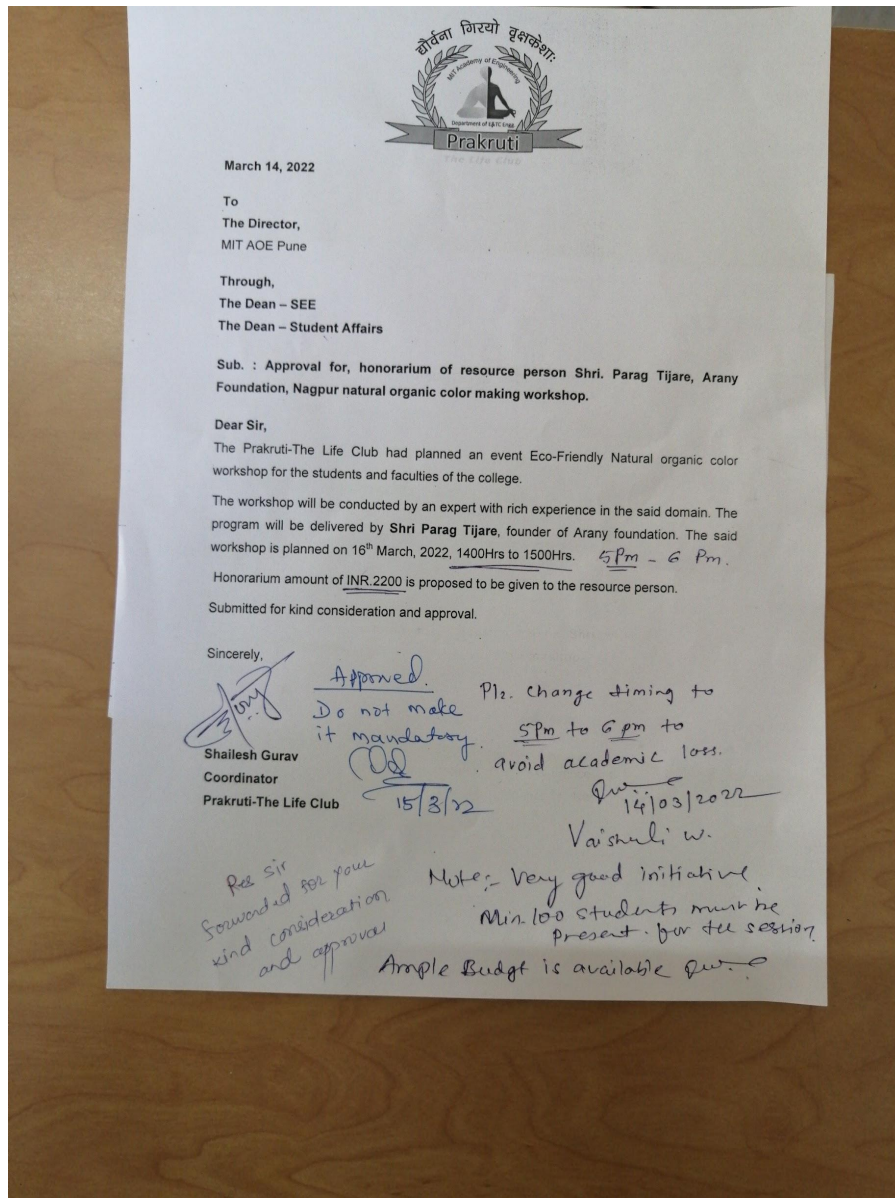 द्यौर्वना गिरयो वृक्षकेशाः
MIT Academy of Engineering
Department of E&TC Engg
Prakruti
The Life Club
March 14, 2022
To
The Director,
MIT AOE Pune
Through,
The Dean – SEE
The Dean – Student Affairs
Sub. : Approval for, honorarium of resource person Shri. Parag Tijare, Arany
Foundation, Nagpur natural organic color making workshop.
Dear Sir,
The Prakruti-The Life Club had planned an event Eco-Friendly Natural organic color
workshop for the students and faculties of the college.
The workshop will be conducted by an expert with rich experience in the said domain. The
program will be delivered by Shri Parag Tijare, founder of Arany foundation. The said
workshop is planned on 16th March, 2022, 1400Hrs to 1500Hrs. 5Pm - 6 Pm.
Honorarium amount of INR.2200 is proposed to be given to the resource person.
Submitted for kind consideration and approval.
Sincerely,
Approved.
Do not make
it mandatory.
15/3/22
Plz. change timing to
5Pm to 6 pm to
avoid academic loss.
14/03/2022
Vaishali W.
Shailesh Gurav
Coordinator
Prakruti-The Life Club
Res sir
forwarded for your
kind consideration
and approval
Note:- Very good initiative.
Min. 100 students must be
present for the session
Ample Budgt is available